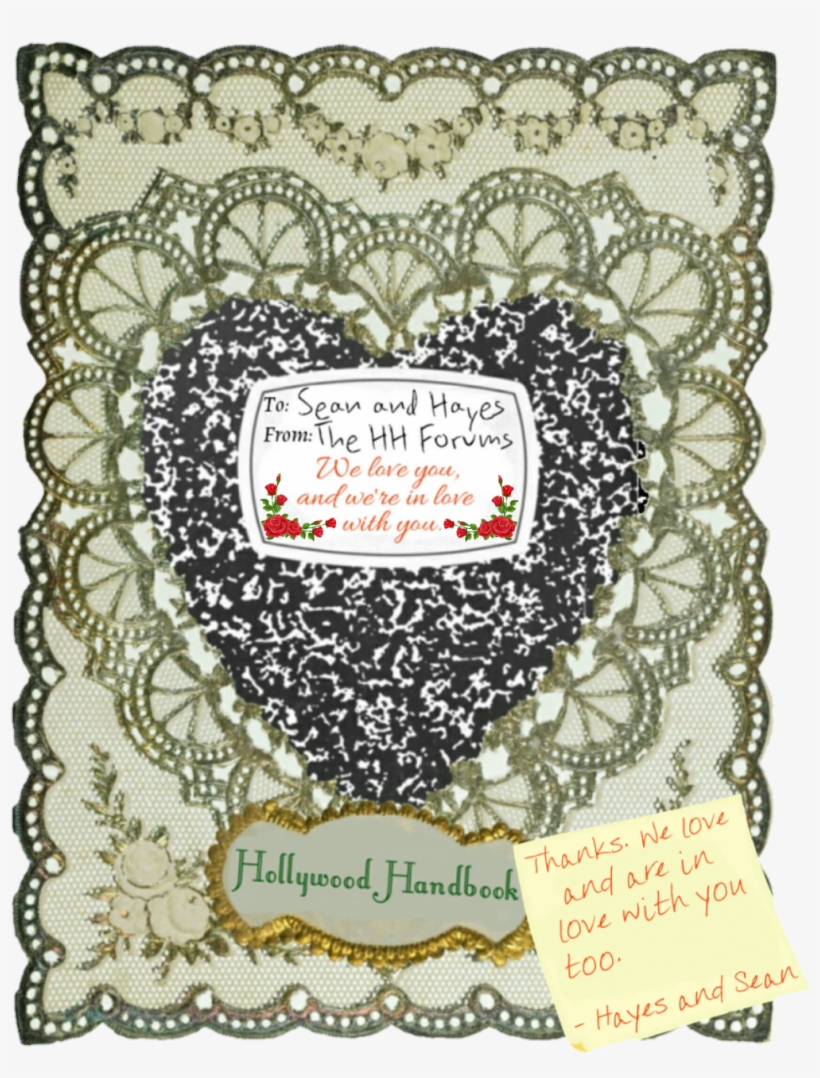 To: Sean and Hayes
From: The HH Forums
We love you,
and we're in love
with you.
Hollywood Handbook
Thanks. We love
and are in
love with you
too.
- Hayes and Sean